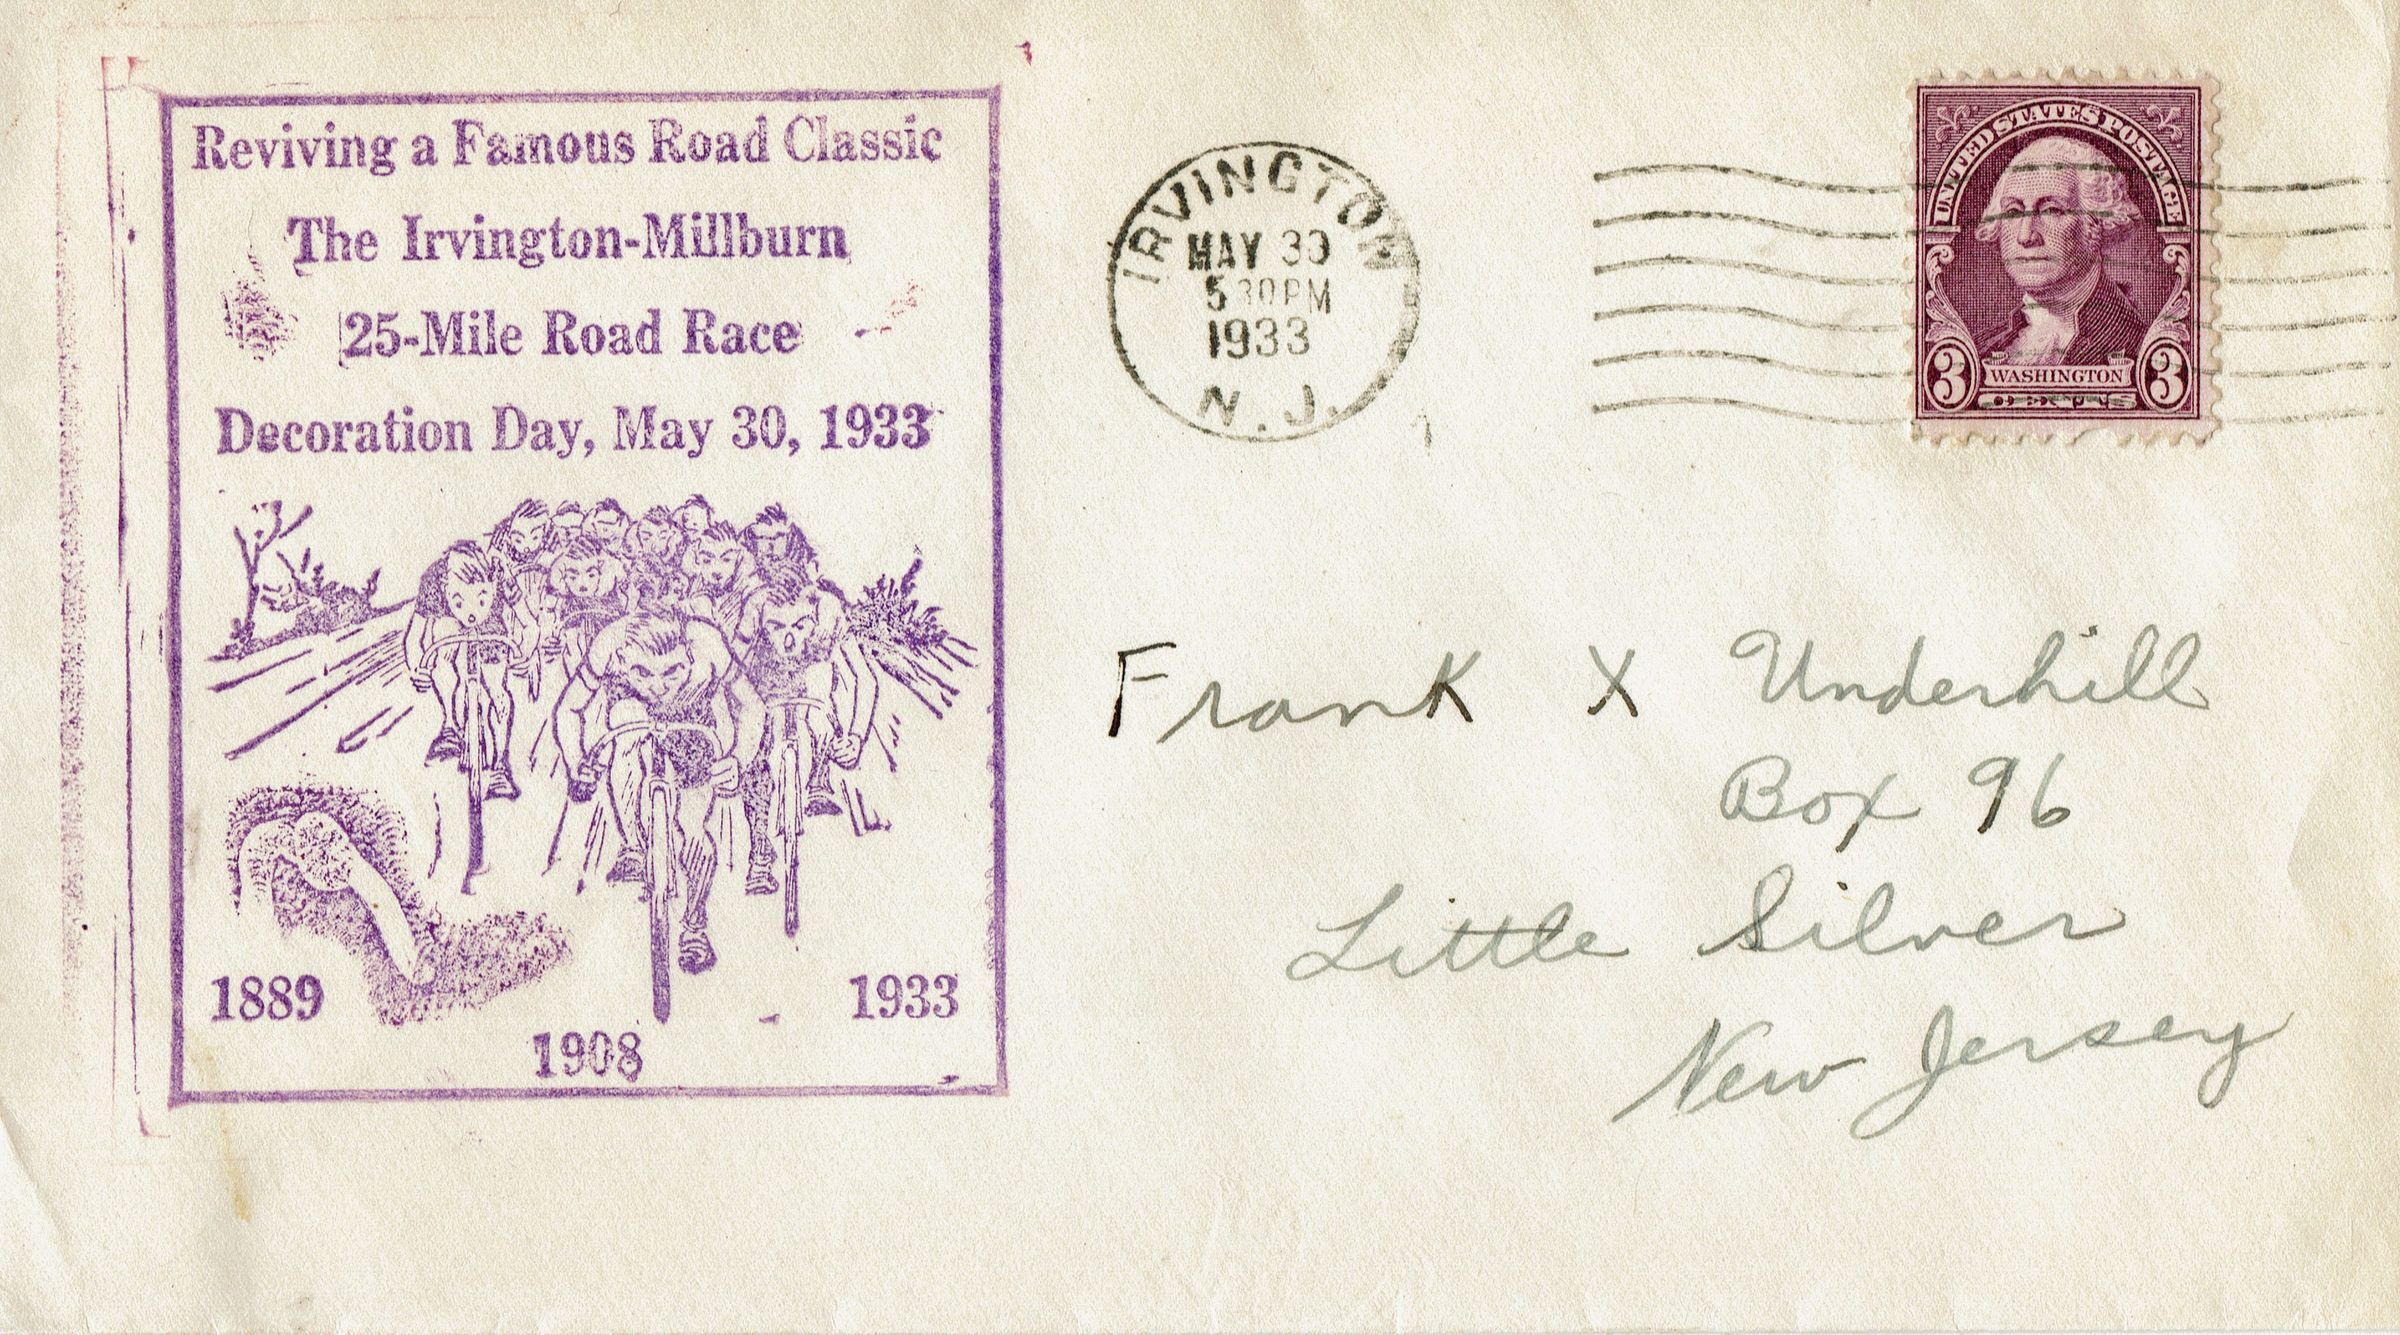 Reviving a Famous Road Classic
The Irvington-Millburn
25-Mile Road Race
Decoration Day, May 30, 1933
1889
1933
1908
IRVINGTON
MAY 30
5 30 PM
1933
N.J.
UNITED STATES POSTAGE
3 WASHINGTON 3
Frank X Underhill
Box 96
Little Silver
New Jersey